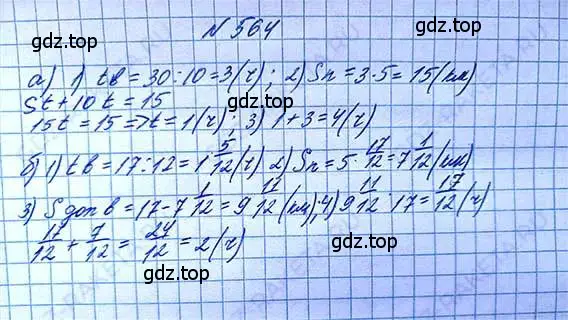 N 564
gdz.top
gdz.top
а) 1) tв = 30 : 10 = 3 (ч) ; 2) Sп = 3·5 = 15 (км)
5t + 10t = 15
15t = 15 => t = 1 (ч) ; 3) 1 + 3 = 4 (ч)
gdz.top
б) 1) tв = 17 : 12 = 1 5/12 (ч) 2) Sп = 5 · 17/12 = 7 1/12 (км)
gdz.top
3) Sдоп в = 17 - 7 1/12 = 9 11/12 (км) ; 4) 9 11/12 : 17 = 17/12 (ч)
17/12 + 7/12 = 24/12 = 2 (ч)
gdz.top